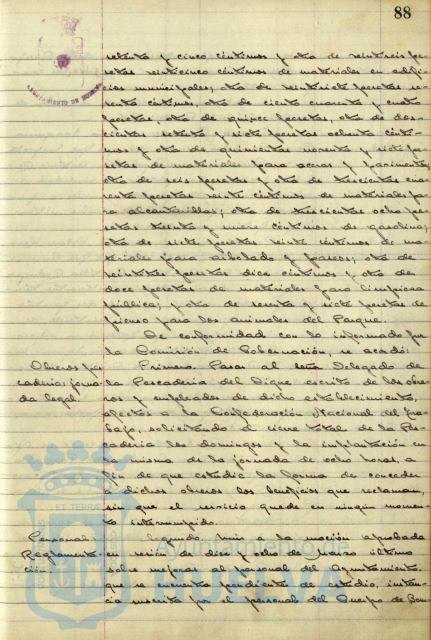 88
AYUNTAMIENTO DE HUELVA
setenta y cinco céntimos y otra de veintiseis pe-
setas veinticinco céntimos de materiales en edifi-
cios municipales; otra de veintisiete pesetas se-
tenta céntimos, otra de ciento cuarenta y cuatro
pesetas, otra de quince pesetas, otra de dos-
cientas setenta y siete pesetas ochenta cénti-
mos y otra de quinientas noventa y siete pe-
setas de materiales para aceras y pavimentos;
otra de seis pesetas y otra de trescientas cua-
renta pesetas veinte céntimos de materiales pa-
ra alcantarillas; otra de trescientas ocho pe-
setas treinta y nueve céntimos de gasolina;
otra de siete pesetas veinte céntimos de ma-
teriales para arbolado y paseos; otra de
veintitres pesetas diez céntimos y otra de
doce pesetas de materiales para limpieza
pública; y otra de sesenta y siete pesetas de
pienso para los animales del Parque.
De conformidad con lo informado por
la Comisión de Gobernación, se acordó:
Obreros pes-
cadería: jorna-
da legal.
Primero. Pasar al señor Delegado de
la Pescadería del Dique escrito de los obre-
ros y empleados de dicho establecimiento,
afectos a la Confederación Nacional del Tra-
bajo, solicitando el cierre total de la Pes-
cadería los domingos y la implantación en
la misma de la jornada de ocho horas, a
fin de que estudie la forma de conceder
a dichos obreros los beneficios que reclaman,
sin que el servicio quede en ningún momen-
to interrumpido.
Personal:
Reglamenta-
ción.
Segundo. Unir a la moción aprobada
en sesión de diez y ocho de marzo último
sobre mejoras al personal del Ayuntamiento,
que se encuentra pendiente de estudio, instan-
cia suscrita por el personal del Cuerpo de Bom-
ET TERRA
Ayuntamiento de
HUELVA